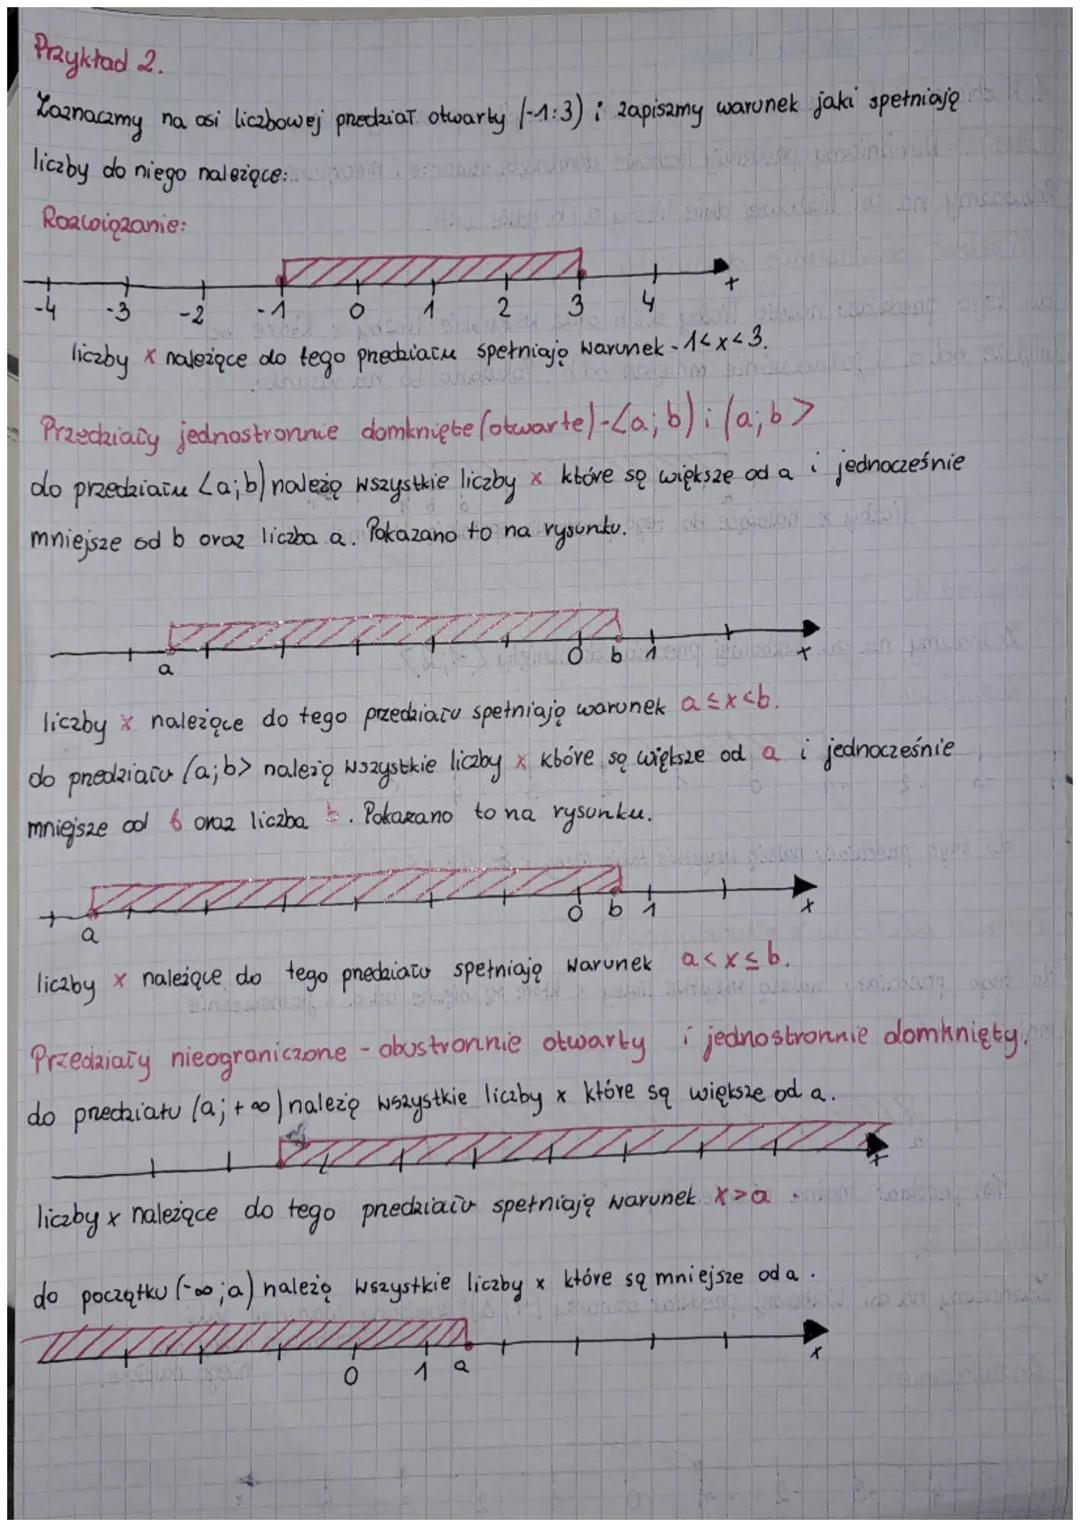 Przykład 2.
Zaznaczmy na osi liczbowej przedział otwarty (-1:3) i zapiszmy warunek jaki spełniają
liczby do niego należące:
Rozwiązanie:
-4 -3 -2 -1 0 1 2 3 4 +
liczby x należące do tego przedziału spełniają warunek -1<x<3.
Przedziały jednostronnie domknięte (otwarte) - <a;b) i (a;b>
do przedziału <a;b) należą wszystkie liczby x które są większe od a i jednocześnie
mniejsze od b oraz liczba a. Pokazano to na rysunku.
a 0 b 1 x
liczby x należące do tego przedziału spełniają warunek a≤x<b.
do przedziału (a;b> należą wszystkie liczby x które są większe od a i jednocześnie
mniejsze od b oraz liczba b. Pokazano to na rysunku.
a 0 b 1 x
liczby x należące do tego przedziału spełniają warunek a<x≤b.
Przedziały nieograniczone - obustronnie otwarty i jednostronnie domknięty.
do przedziału (a;+∞) należą wszystkie liczby x które są większe od a.
x
liczby x należące do tego przedziału spełniają warunek x>a.
do początku (-∞;a) należą wszystkie liczby x które są mniejsze od a.
0 1 a x